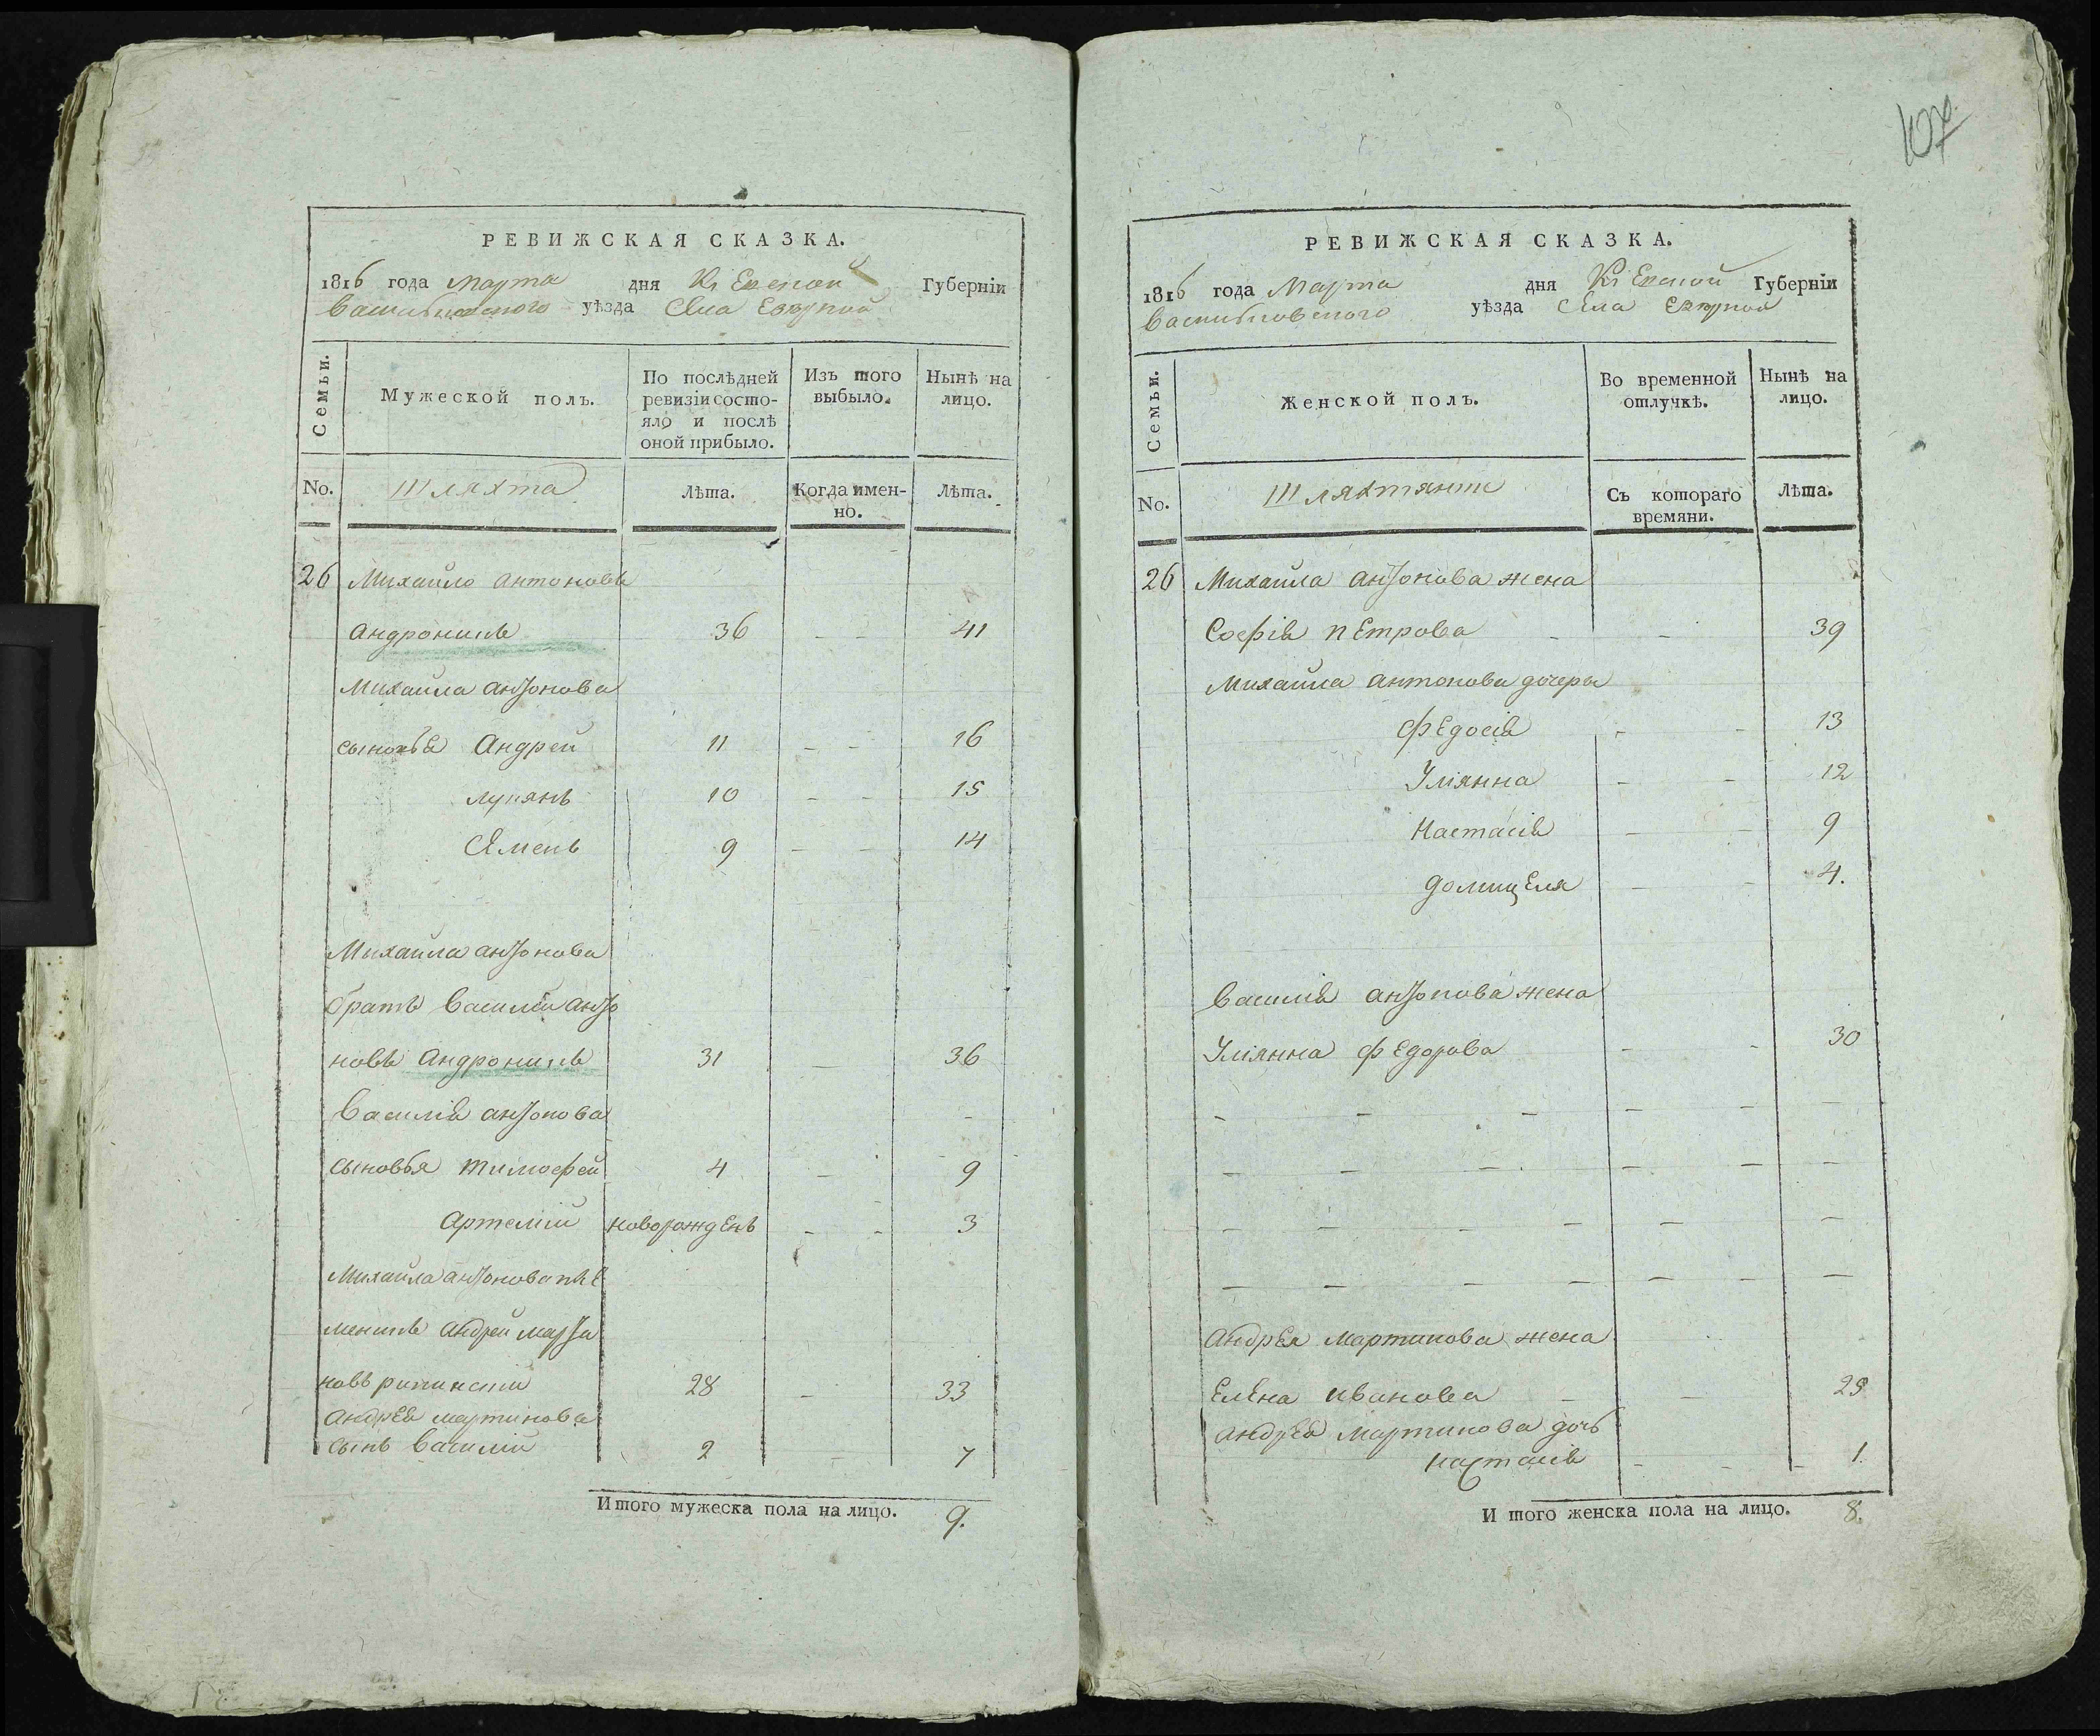 107
РЕВИЖСКАЯ СКАЗКА.
1816 года Марта дня Кіевской Губерніи
Васильковскаго уѣзда Села Езерной
Семьи.
Мужеской полъ.
По послѣдней ревизіи состо-
яло и послѣ
оной прибыло.
Изъ того
выбыло.
Нынѣ на
лицо.
No.
Шляхта
Лѣта.
Когда имен-
но.
Лѣта.
26 Михайло Антоновъ
Андроникъ 36 — — 41
Михайла Антонова
сыновья Андрей 11 — — 16
Лукянъ 10 — — 15
Семенъ 9 — — 14
Михайла Антонова
братъ Василий Анто
новъ Андроникъ 31 — 36
Василія Антонова
сыновья Тимофей 4 — 9
Артемій новорожденъ — — 3
Михайла Антонова пле
меникъ Андрей Марти
новъ 28 — 33
Андрея Мартинова
сынъ Василій 2 — 7
Итого мужеска пола на лицо. 9.
РЕВИЖСКАЯ СКАЗКА.
1816 года Марта дня Кіевской Губерніи
Васильковского уѣзда Села Езерной
Семьи.
Женской полъ.
Во временной
отлучкѣ.
Нынѣ на
лицо.
No.
Шляхтянки
Съ котораго
времяни.
Лѣта.
26 Михайла Антонова жена
Софія Петрова — — 39
Михайла Антонова дочеры
Федосія — — 13
Уліянна — — 12
Настасія — — 9
Домицеля — — 4.
Василія Антонова жена
Уліянна Федорова — — 30
Андрея Мартинова жена
Елена Иванова — — 25
Андрея Мартинова дочь
Настасія — — — 1.
Итого женска пола на лицо. 8.